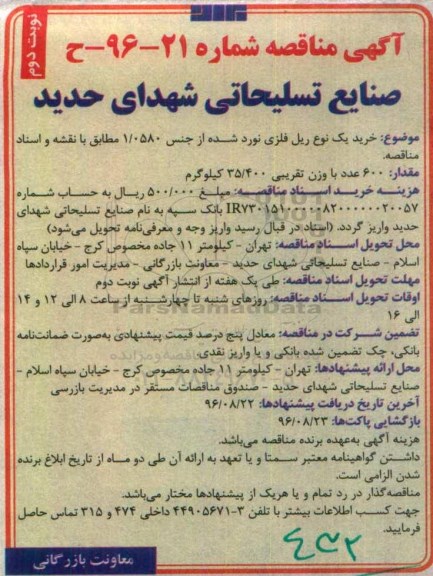 نوبت دوم
آگهی مناقصه شماره ۲۱-۹۶-ح
صنایع تسلیحاتی شهدای حدید
موضوع: خرید یک نوع ریل فلزی نورد شده از جنس ۱/۰۵۸۰ مطابق با نقشه و اسناد
مناقصه.
مقدار: ۶۰۰ عدد با وزن تقریبی ۳۵/۴۰۰ کیلوگرم
هزینه خرید اسناد مناقصه: مبلغ ۵۰۰/۰۰۰ ریال به حساب شماره
بانک سپه به نام صنایع تسلیحاتی شهدای
حدید واریز گردد. (اسناد در قبال رسید واریز وجه و معرفی‌نامه تحویل می‌شود)
محل تحویل اسناد مناقصه: تهران - کیلومتر ۱۱ جاده مخصوص کرج - خیابان سپاه
اسلام - صنایع تسلیحاتی شهدای حدید - معاونت بازرگانی - مدیریت امور قراردادها
مهلت تحویل اسناد مناقصه: طی یک هفته از انتشار آگهی نوبت دوم
اوقات تحویل اسناد مناقصه: روزهای شنبه تا چهارشنبه از ساعت ۸ الی ۱۲ و ۱۴
الی ۱۶
ParsNamadData
تضمین شرکت در مناقصه: معادل پنج درصد قیمت پیشنهادی به‌صورت ضمانت‌نامه
بانکی، چک تضمین شده بانکی و یا واریز نقدی.
محل ارائه پیشنهادها: تهران - کیلومتر ۱۱ جاده مخصوص کرج - خیابان سپاه اسلام -
صنایع تسلیحاتی شهدای حدید - صندوق مناقصات مستقر در مدیریت بازرسی
آخرین تاریخ دریافت پیشنهادها: ۹۶/۰۸/۲۲
بازگشایی پاکت‌ها: ۹۶/۰۸/۲۳
هزینه آگهی به‌عهده برنده مناقصه می‌باشد.
داشتن گواهینامه معتبر سمتا و یا تعهد به ارائه آن طی دو ماه از تاریخ ابلاغ برنده
شدن الزامی است.
مناقصه‌گذار در رد تمام و یا هریک از پیشنهادها مختار می‌باشد.
جهت کسب اطلاعات بیشتر با تلفن ۳-۴۴۹۰۵۶۷۱ داخلی ۴۷۴ و ۳۱۵ تماس حاصل
فرمایید.
معاونت بازرگانی